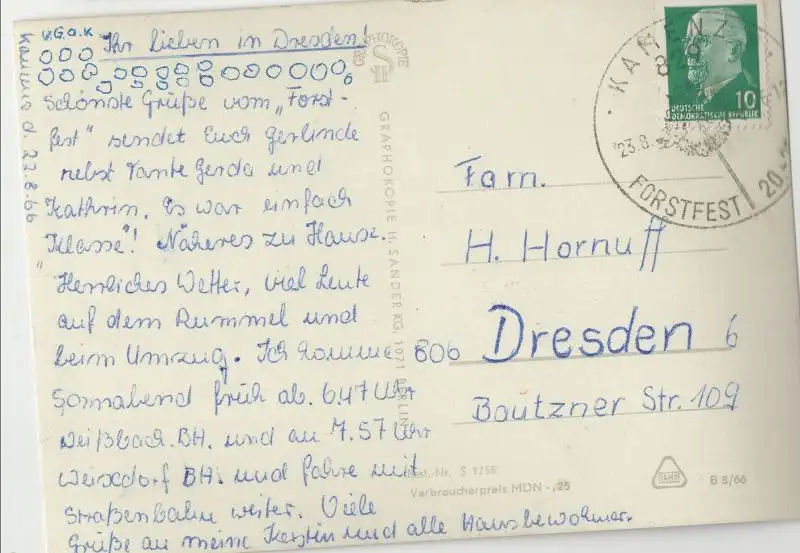 V.G.a.K
Kamenz d. 22.8.66
Ihr Lieben in Dresden!
Schönste Grüße vom „Forst-
fest" sendet Euch Gerlinde
nebst Tante Gerda und
Kathrin. Es war einfach
„Klasse"! Näheres zu Hause.
Herrliches Wetter, viel Leute
auf dem Rummel und
beim Umzug. Ich komme
Sonnabend früh ab. 6.47 Uhr
Weißbach. BH. und an 7.57 Uhr
Weixdorf BH. und fahre mit
Straßenbahn weiter. Viele
Grüße an meine Kerstin und alle Hausbewohner.
GRAPHOKOPIE
GRAPHOKOPIE H. SANDER KG. 1071 BERLIN
KAMENZ
829
23.8.
FORSTFEST
DEUTSCHE
DEMOKRATISCHE REPUBLIK
10
Fam.
H. Hornuff
806 Dresden 6
Bautzner Str. 109
Best.-Nr. S 1758
Verbraucherpreis MDN -,25
DAMW
B 8/66